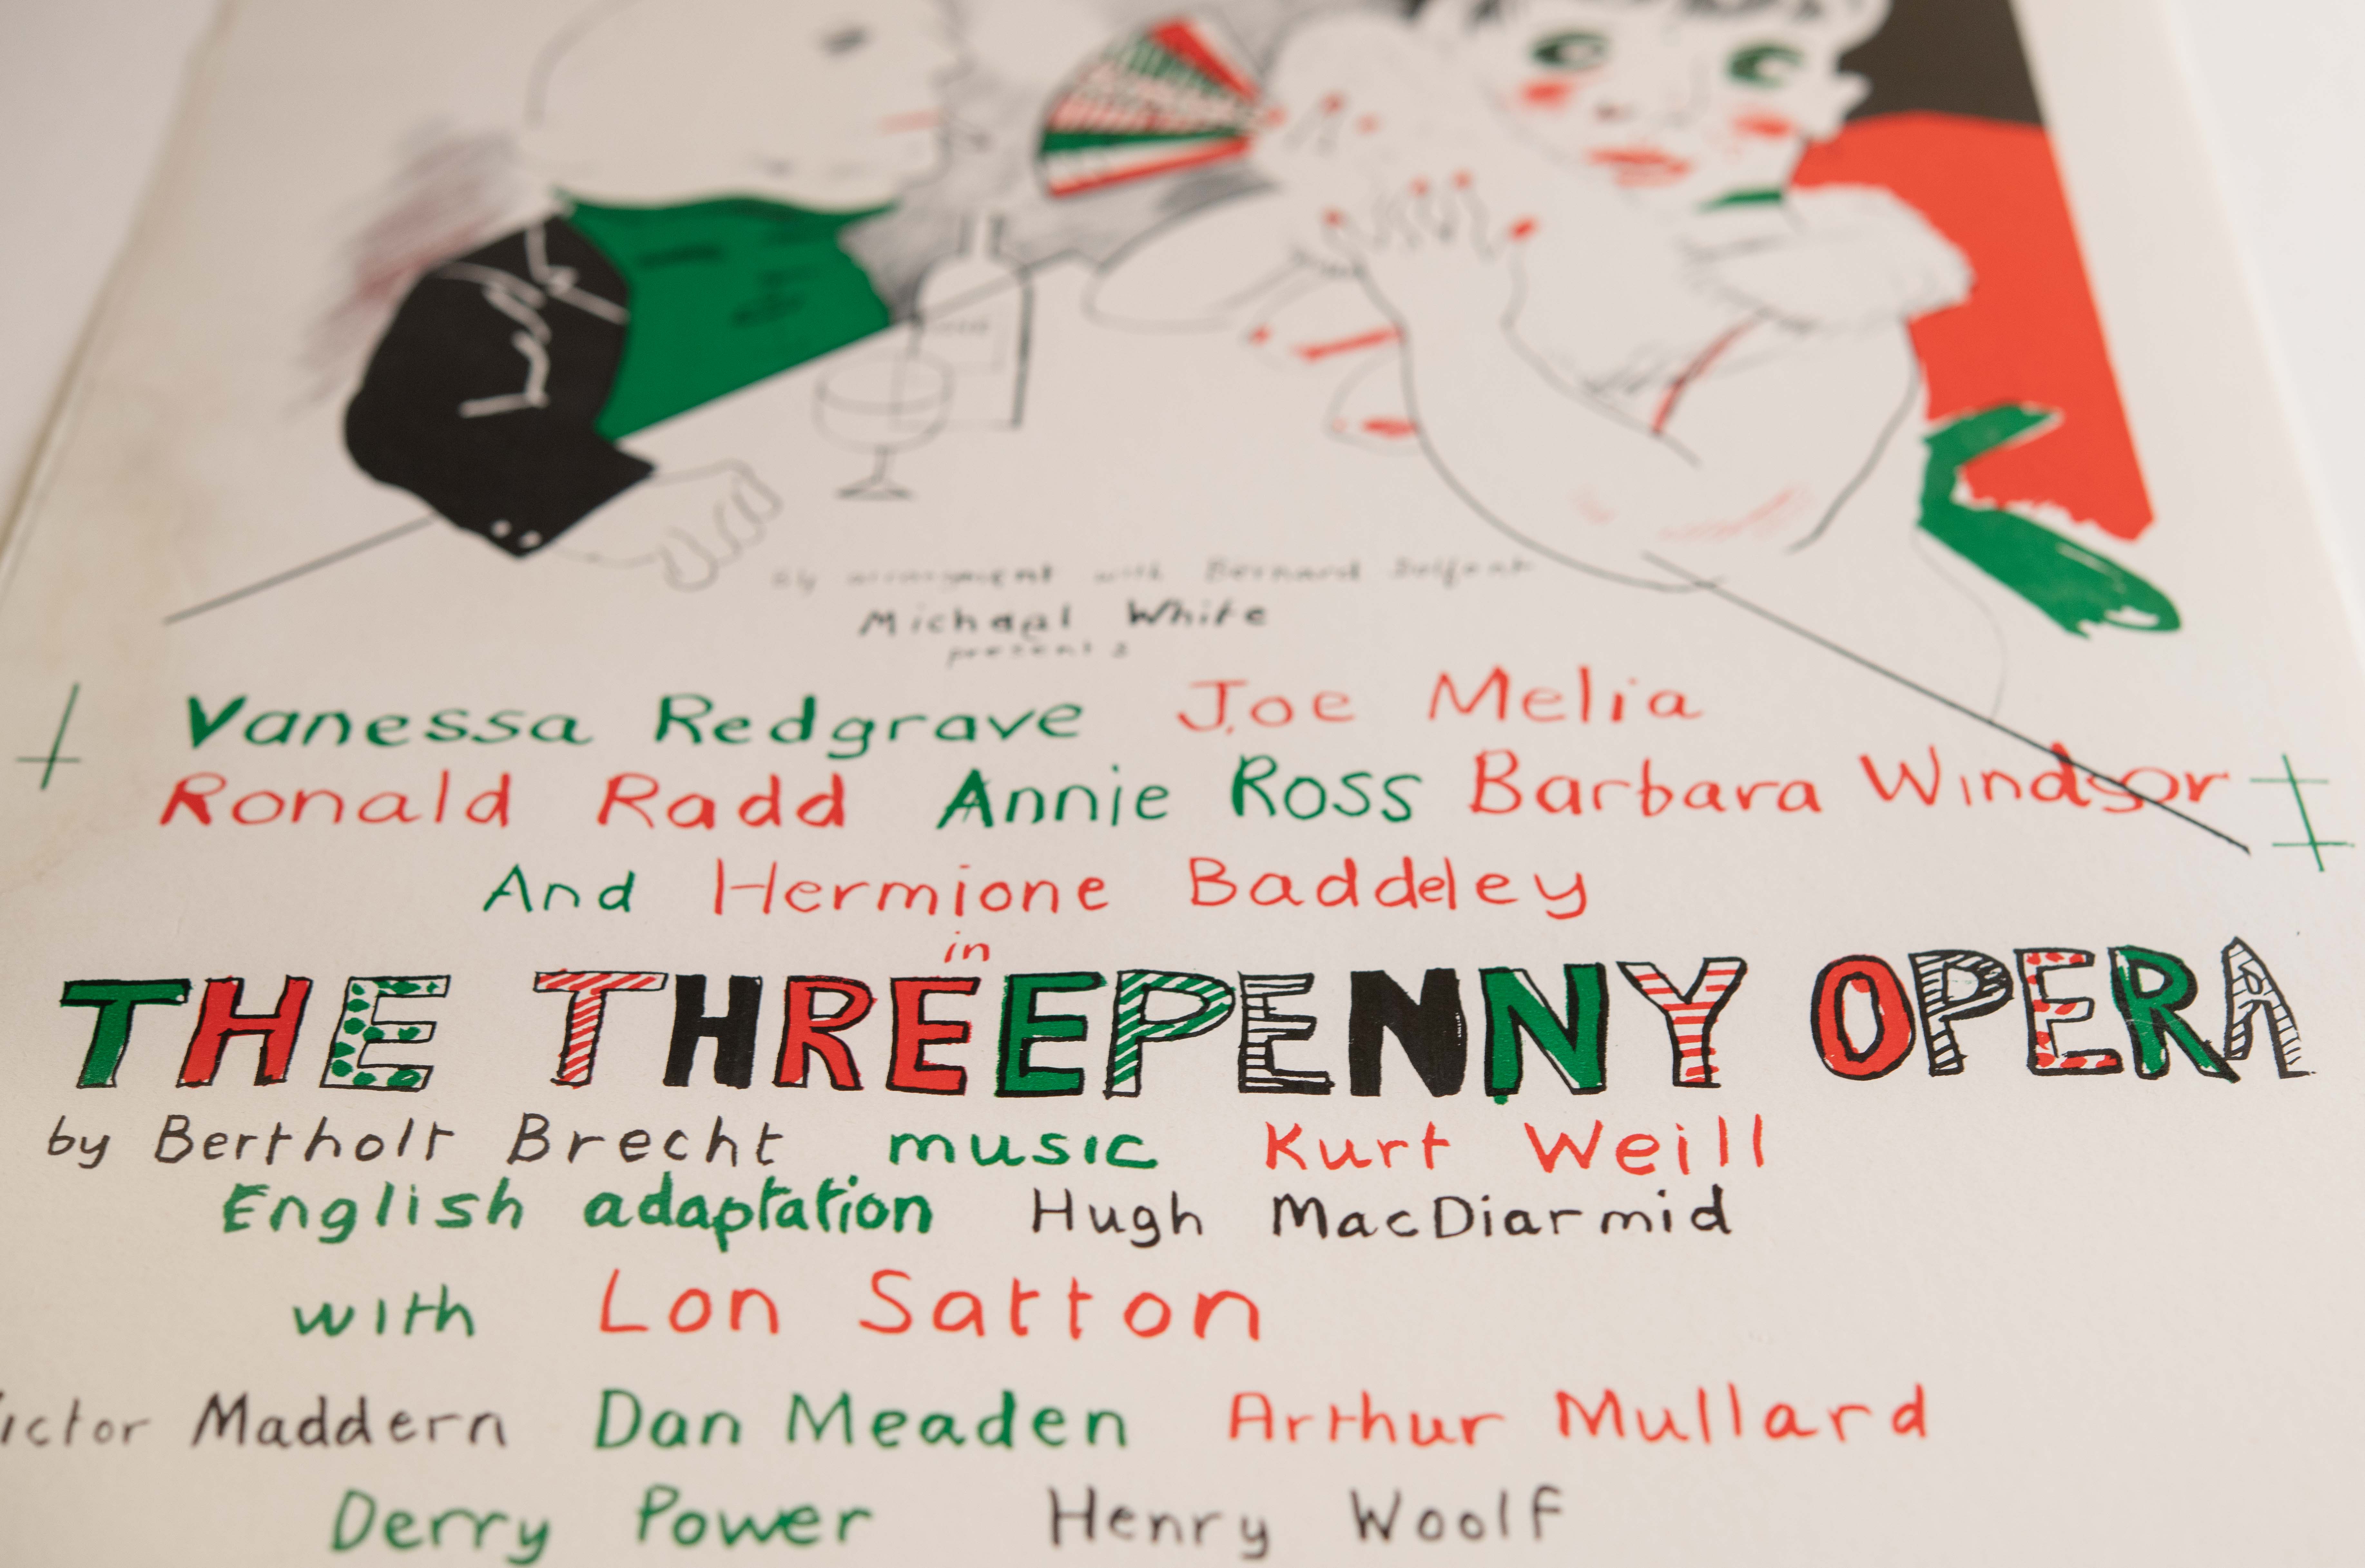 By arrangement with Bernard Delfont
Michael White
presents
Vanessa Redgrave Joe Melia
Ronald Radd Annie Ross Barbara Windsor
And Hermione Baddeley
in
THE THREEPENNY OPERA
by Bertholt Brecht music Kurt Weill
English adaptation Hugh MacDiarmid
with Lon Satton
ictor Maddern Dan Meaden Arthur Mullard
Derry Power Henry Woolf